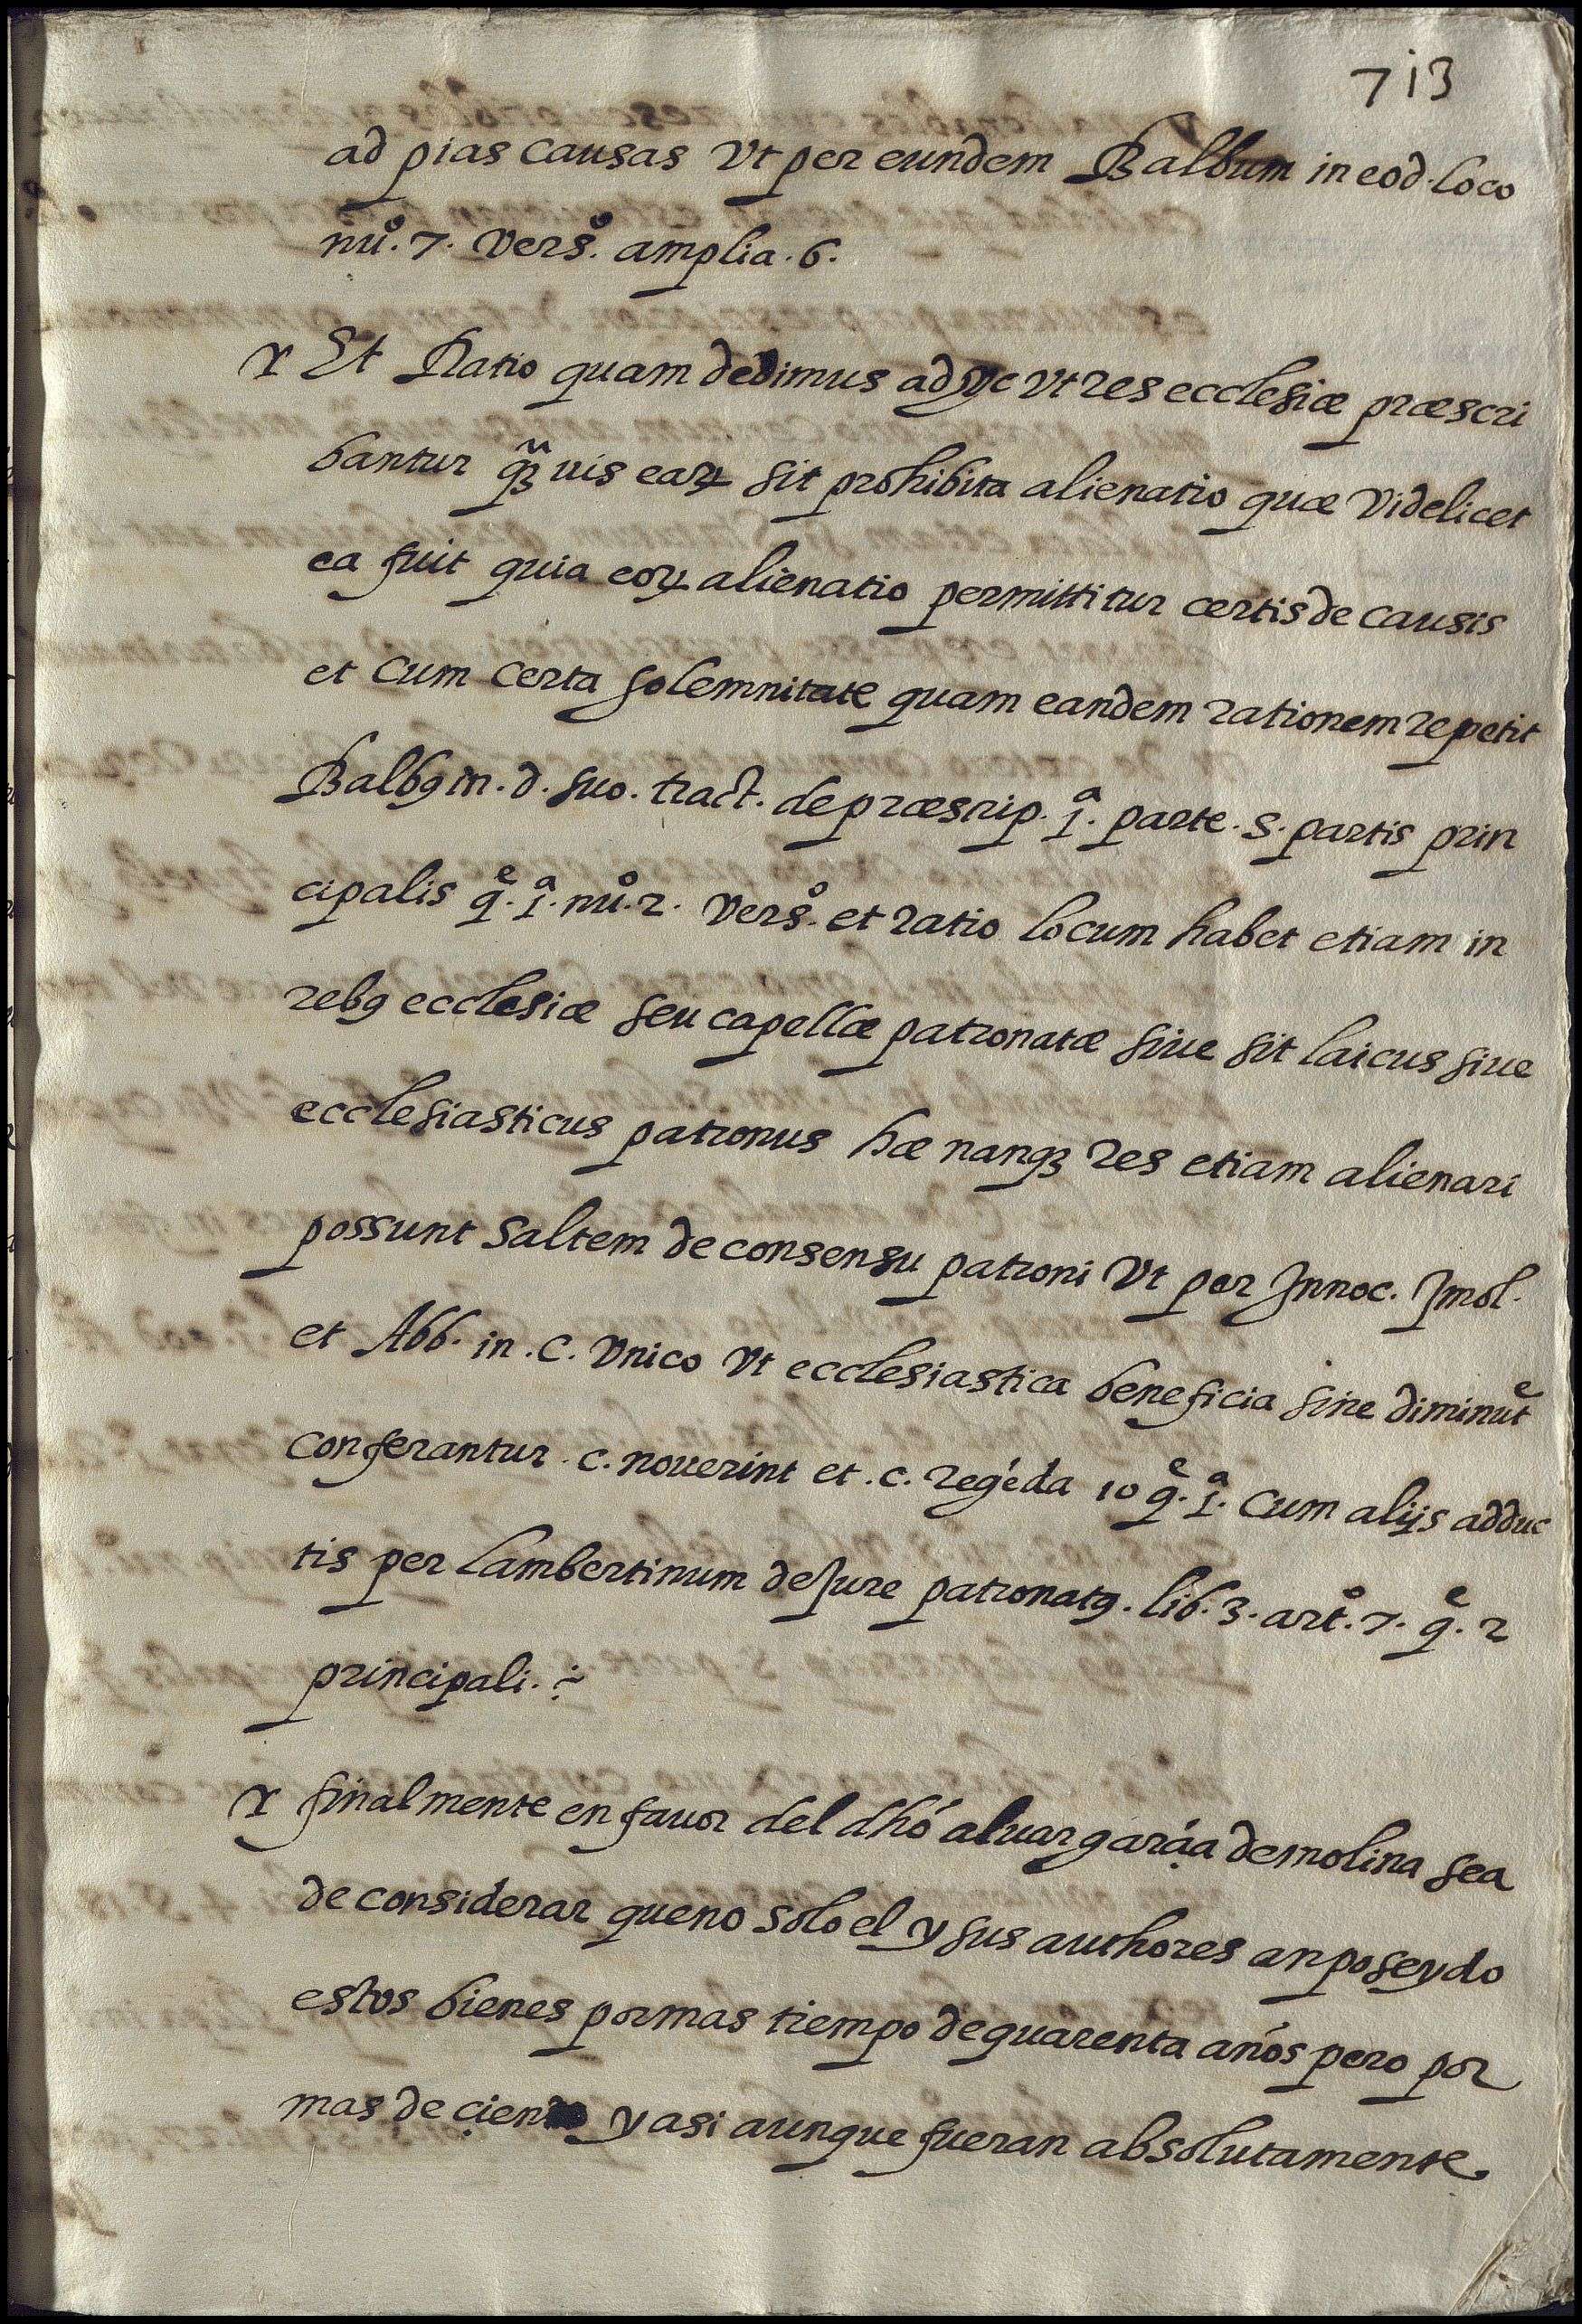 713
ad pias causas Vt per eundem Balbum in eod. loco
nuº. 7. versº. amplia. 6.
Et Ratio quam dedimus ad hoc Vt res ecclesiæ præscri
bantur quis earꝝ sit prohibita alienatio quæ Videlicet
ea fuit quia eorꝝ alienatio permittitur certis de causis
et cum certa solemnitate quam eandem rationem repetit
Balbꝯ in. d. suo. tract. de præscrip. 1ª. parte. 5. partis prin
cipalis qᵉ. 1ª. nuº. 2. versº. et ratio locum habet etiam in
rebꝯ ecclesiæ seu capellæ patronatæ siue sit laicus siue
ecclesiasticus patronus hæ nanqꝫ res etiam alienari
possunt saltem de consensu patroni Vt per Innoc. Imol.
et Abb. in. c. Vnico Vt ecclesiastica beneficia sine diminutᵉ
conferantur. c. nouerint et. c. regēda 10 qᵉ. 1ª. cum alijs adduc
tis per Lambertinum de Jure patronatꝯ. lib. 3. artº. 7. qᵉ. 2
principali. ÷
finalmente en fauor del dhó aluar garçia de molina sea
de considerar que no solo el y sus authores an poseydo
estos bienes por mas tiempo de quarenta años pero por
mas de çiento y asi aunque fueran absolutamente